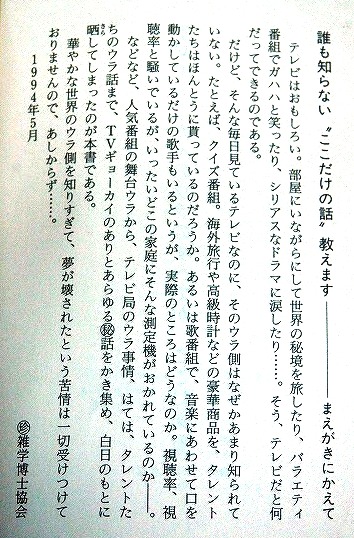 誰も知らない〝ここだけの話〟教えます ――――― まえがきにかえて
テレビはおもしろい。部屋にいながらにして世界の秘境を旅したり、バラエティ
番組でガハハと笑ったり、シリアスなドラマに涙したり……。そう、テレビだと何
だってできるのである。
だけど、そんな毎日見ているテレビなのに、そのウラ側はなぜかあまり知られて
いない。たとえば、クイズ番組。海外旅行や高級時計などの豪華商品を、タレント
たちはほんとうに貰っているのだろうか。あるいは歌番組で、音楽にあわせて口を
動かしているだけの歌手もいるというが、実際のところはどうなのか。視聴率、視
聴率と騒いでいるが、いったいどこの家庭にそんな測定機がおかれているのか――。
などなど、人気番組の舞台ウラから、テレビ局のウラ事情、はては、タレントた
ちのウラ話まで、TVギョーカイのありとあらゆる㊙話をかき集め、白日のもとに
晒してしまったのが本書である。
華やかな世界のウラ側を知りすぎて、夢が壊されたという苦情は一切受けつけて
おりませんので、あしからず……。
1994年5月
㊙雑学博士協会